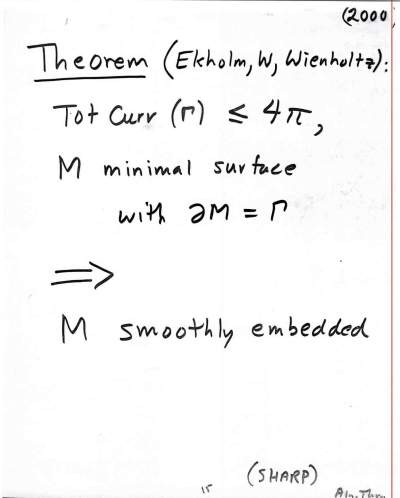 (2000,
Theorem (Ekholm, W, Wienholtz):
Tot Curv (Γ) ≤ 4π,
M minimal surface
with ∂M = Γ
⟹
M smoothly embedded
(SHARP)
15